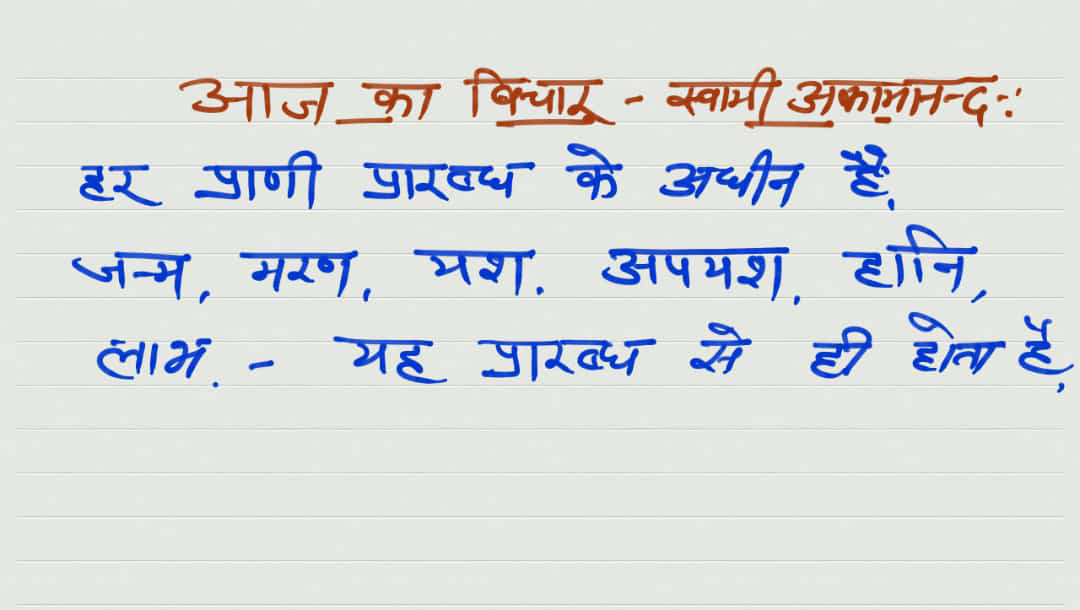 आज का विचार - स्वामी अकामानन्द :
हर प्राणी प्रारब्ध के अधीन है,
जन्म, मरण, यश, अपयश, हानि,
लाभ. - यह प्रारब्ध से ही होता है,